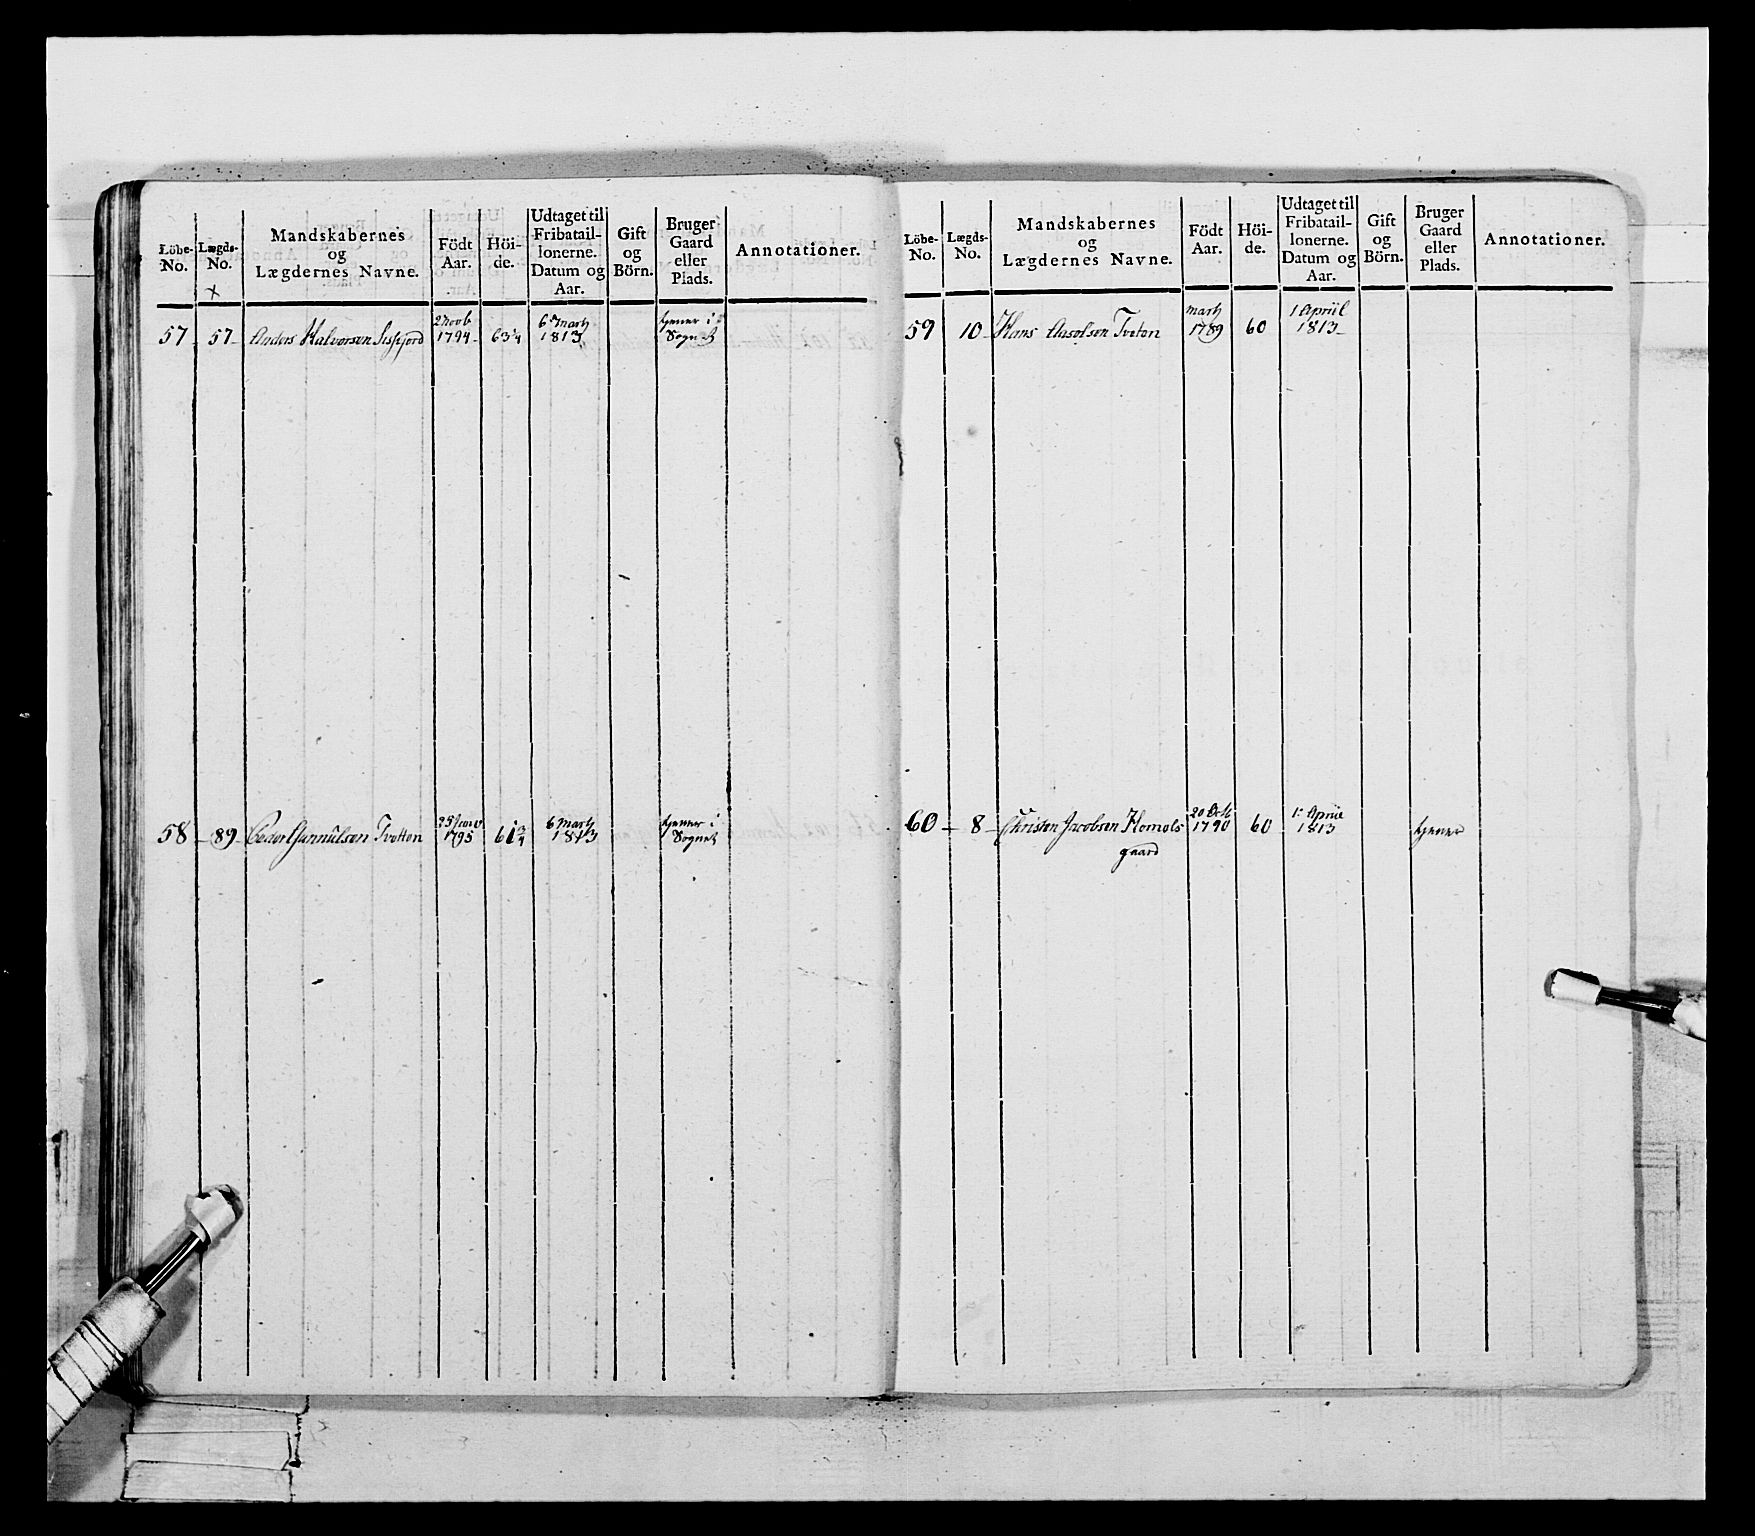 Löbe-No.
Lægds-No.
Mandskabernes og Lægdernes Navne.
Födt Aar.
Höi-de.
Udtaget til Fribatail-lonerne. Datum og Aar.
Gift og Börn.
Bruger Gaard eller Plads.
Annotationer.
x
2 Novb 6 Marts tjener i
57 57 Anders Halvorsen 1794 63¼ 1813 Sognet
6 Marts tjener i
58 89 Peder Gunnulsen Tvetten 1795 61¾ 1813 Sognet
Löbe-No.
Lægds-No.
Mandskabernes og Lægdernes Navne.
Födt Aar.
Höi-de.
Udtaget til Fribatail-lonerne. Datum og Aar.
Gift og Börn.
Bruger Gaard eller Plads.
Annotationer.
Marts 1 Apriil
59 10 Hans Aasolsen Tveten 1789 60 1813
20 Octb 1 Apriil
60 8 Christen Jacobsen Homols 1790 60 1813 tjener
gaard